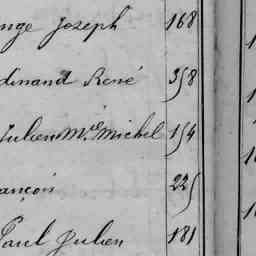 ange Joseph 168
dinand René 358
Julien Mie Michel 154
ançois 225
Paul Julien 181